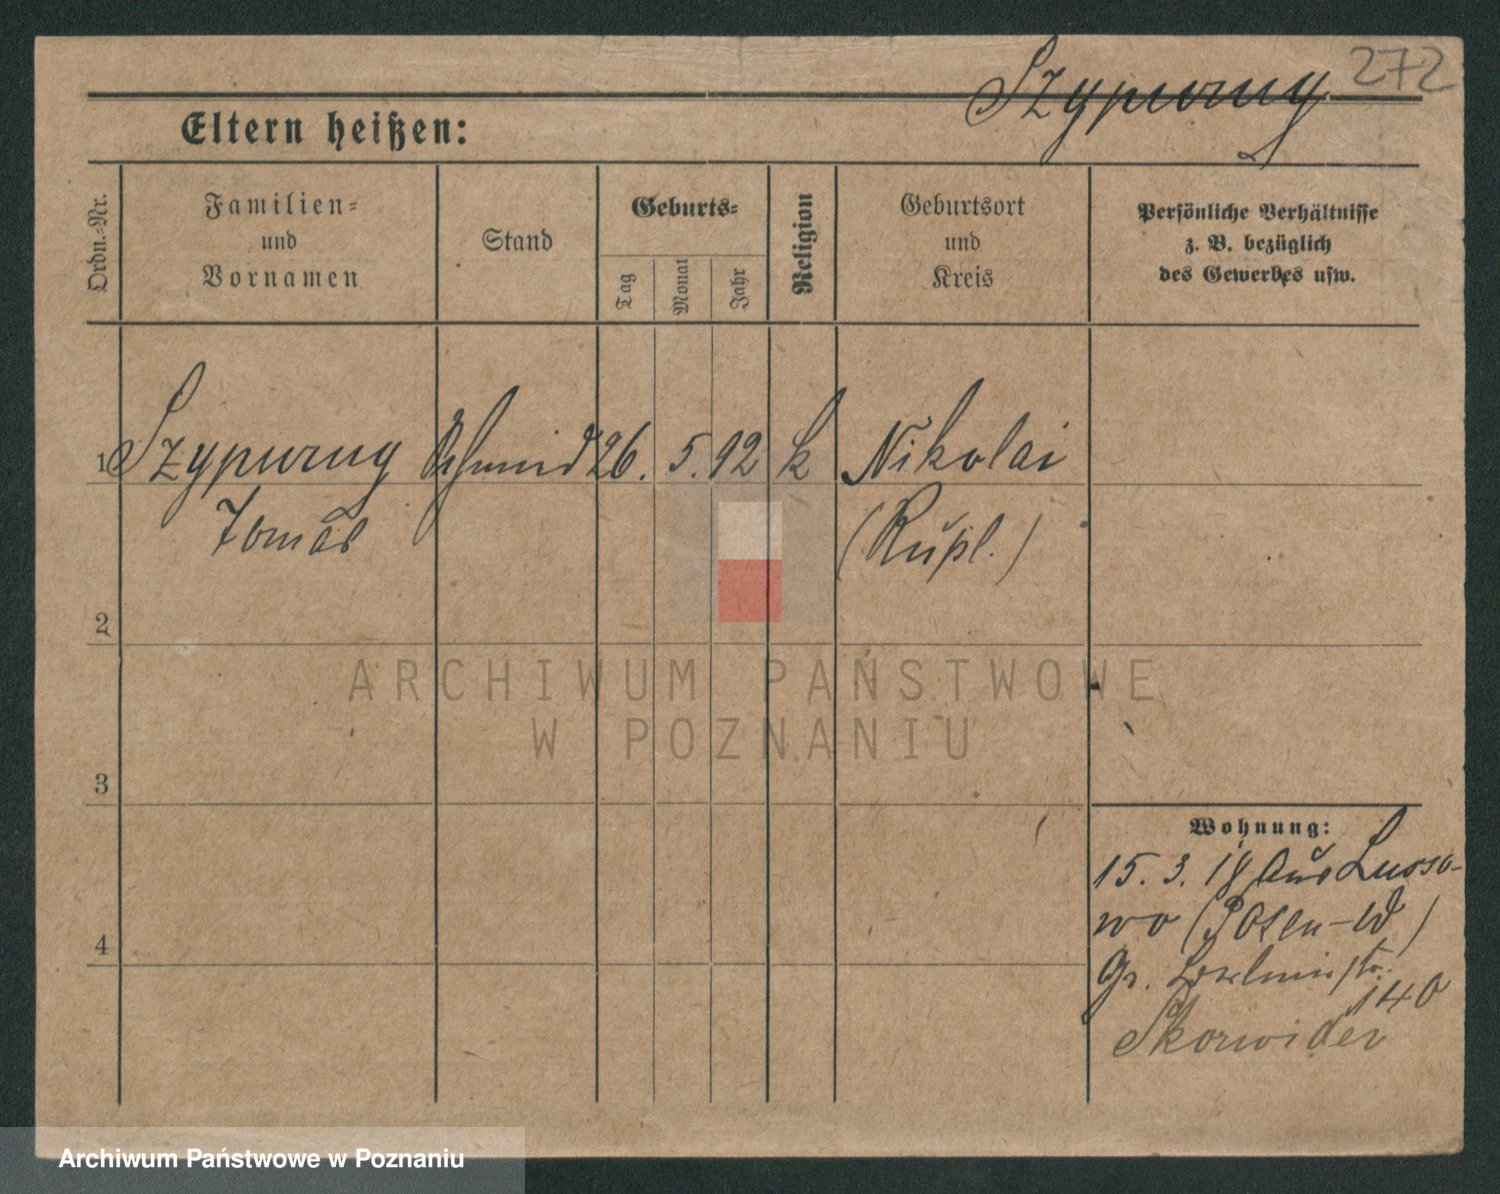 272
Szypurny
Eltern heißen:
Ordn.-Nr.
Familien-
und
Vornamen
Stand
Geburts-
Tag
Monat
Jahr
Religion
Geburtsort
und
Kreis
Persönliche Verhältnisse
z. B. bezüglich
des Gewerbes usw.
1 Szypurny Schmied 26. 5. 92 k Nikolai
Tomas (Rußl.)
2
3
4
ARCHIWUM PAŃSTWOWE
W POZNANIU
Wohnung:
15. 3. 18 aus Lusso-
wo (Posen-W)
Gr. 140
Skorwider
Archiwum Państwowe w Poznaniu